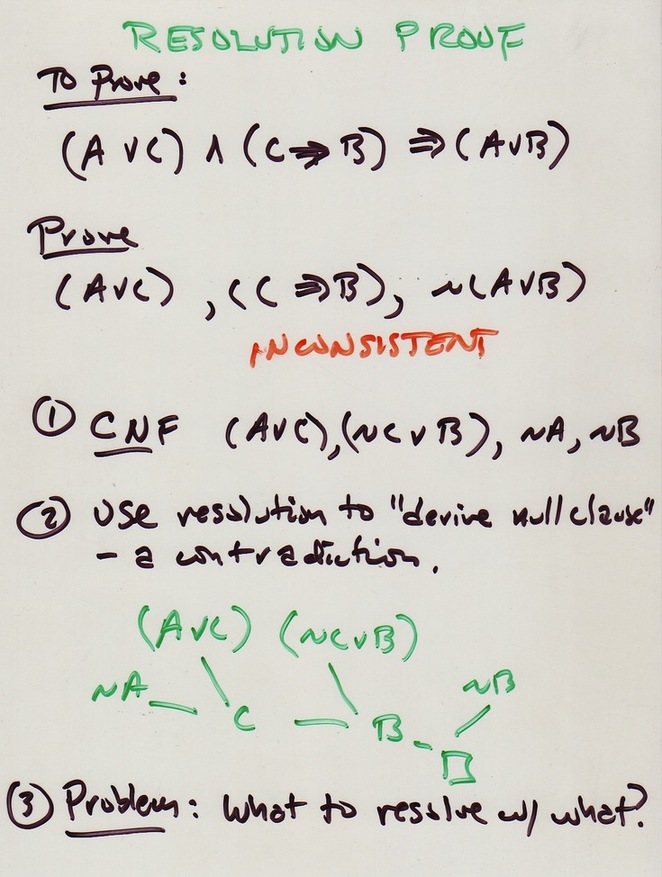 RESOLUTION PROOF
To Prove:
(A ∨ C) ∧ (C ⇒ B) ⇒ (A ∨ B)
Prove
(A ∨ C) , (C ⇒ B), ~(A ∨ B)
INCONSISTENT
① CNF (A ∨ C), (~C ∨ B), ~A, ~B
② Use resolution to "derive null clause"
- a contradiction.
(A ∨ C) (~C ∨ B)
~A ~B
C B
□
③ Problem: What to resolve w/ what?